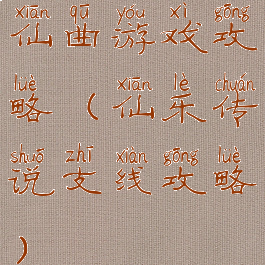 xiān qǔ yóu xì gōng
仙曲游戏攻
lüè xiān lè chuán
略（仙乐传
shuō zhī xiàn gōng lüè
说支线攻略
）